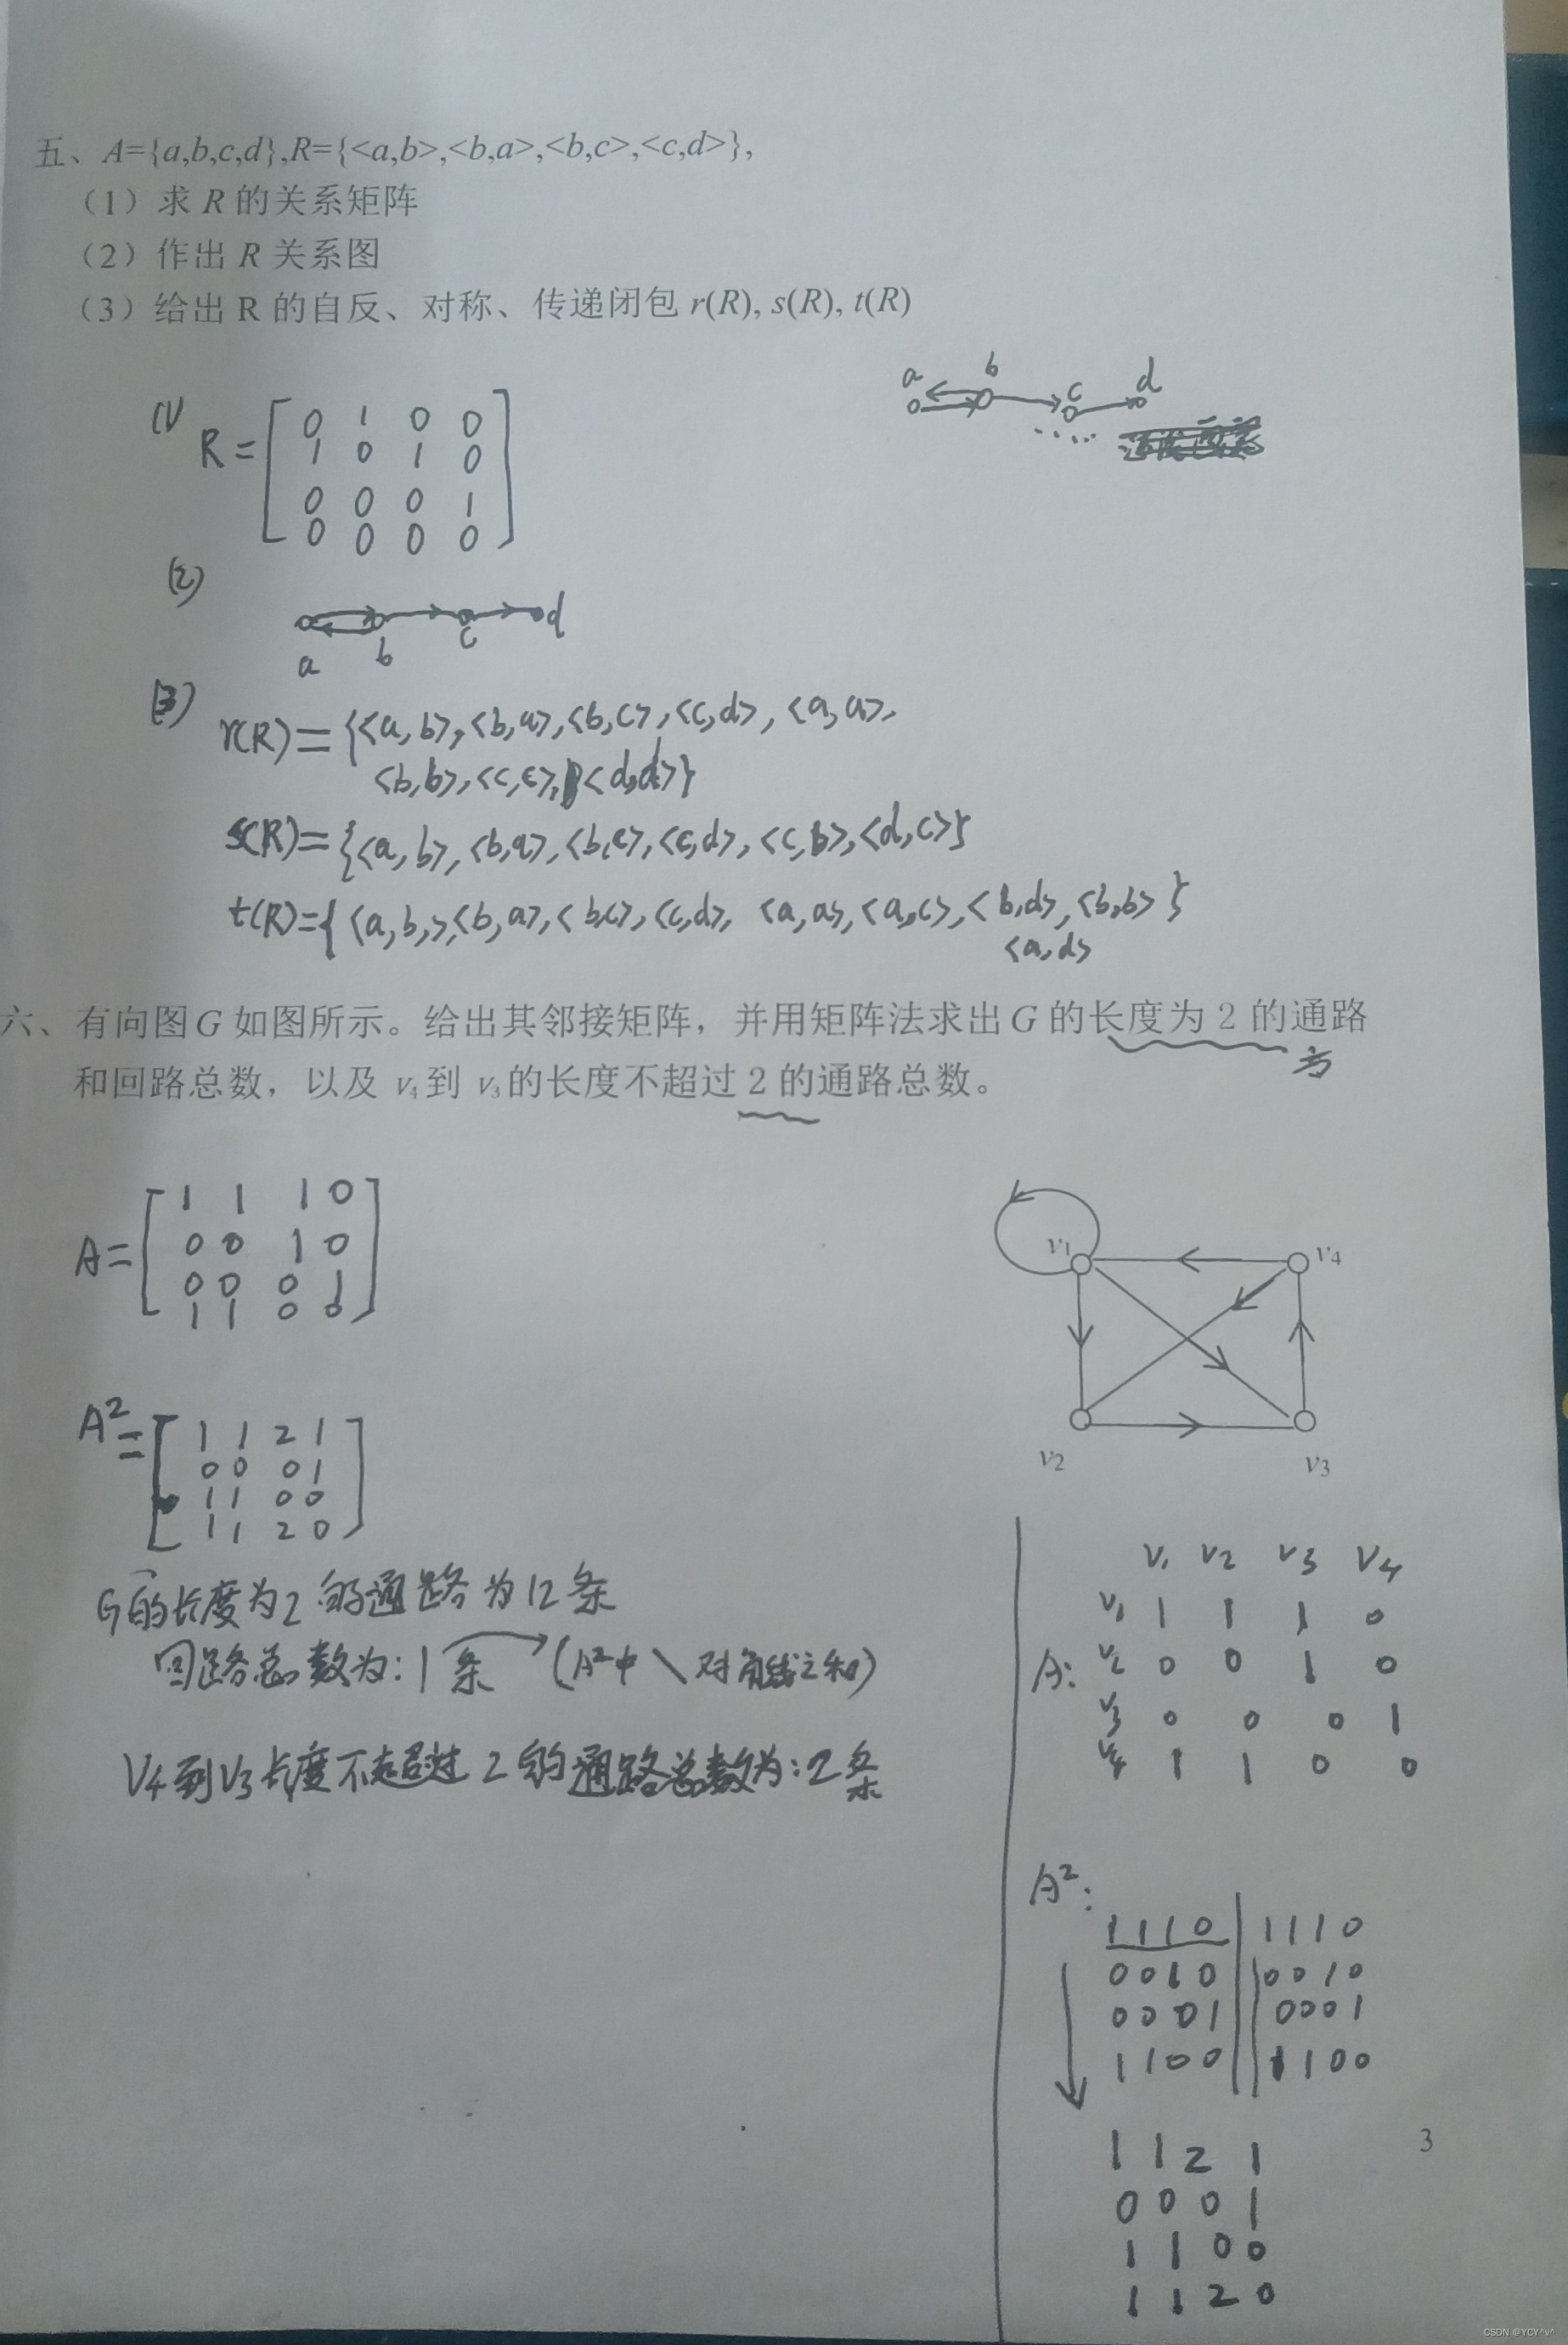 五、A={a,b,c,d},R={<a,b>,<b,a>,<b,c>,<c,d>},
（1）求 R 的关系矩阵
（2）作出 R 关系图
（3）给出 R 的自反、对称、传递闭包 r(R), s(R), t(R)
a b c d
(1)
R=
0 1 0 0
1 0 1 0
0 0 0 1
0 0 0 0
(2)
a b c d
(3)
r(R)={<a,b>,<b,a>,<b,c>,<c,d>,<a,a>,
<b,b>,<c,c>,<d,d>}
s(R)={<a,b>,<b,a>,<b,c>,<c,d>,<c,b>,<d,c>}
t(R)={<a,b,>,<b,a>,<b,c>,<c,d>, <a,a>,<a,c>,<b,d>,<b,b>}
<a,d>
六、有向图G如图所示。给出其邻接矩阵，并用矩阵法求出G的长度为2的通路
和回路总数，以及 v₄到 v₃的长度不超过2的通路总数。
A=
1 1 1 0
0 0 1 0
0 0 0 1
1 1 0 0
v1 v4
v2 v3
A²=
1 1 2 1
0 0 0 1
1 1 0 0
1 1 2 0
G的长度为2的通路为12条
回路总数为:1条 (A²中\对角线之和)
V4到V3长度不超过2的通路总数为:2条
V1 V2 V3 V4
A:
V1 1 1 1 0
V2 0 0 1 0
V3 0 0 0 1
V4 1 1 0 0
A²:
1 1 1 0 1 1 1 0
0 0 1 0 0 0 1 0
0 0 0 1 0 0 0 1
1 1 0 0 1 1 0 0
1 1 2 1
0 0 0 1
1 1 0 0
1 1 2 0
3
CSDN @YCY^v^